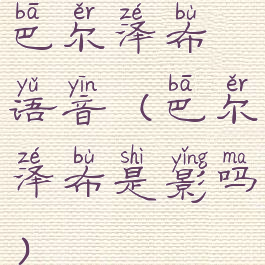 bā ěr zé bù
巴尔泽布
yǔ yīn bā ěr
语音（巴尔
zé bù shì yǐng ma
泽布是影吗
）